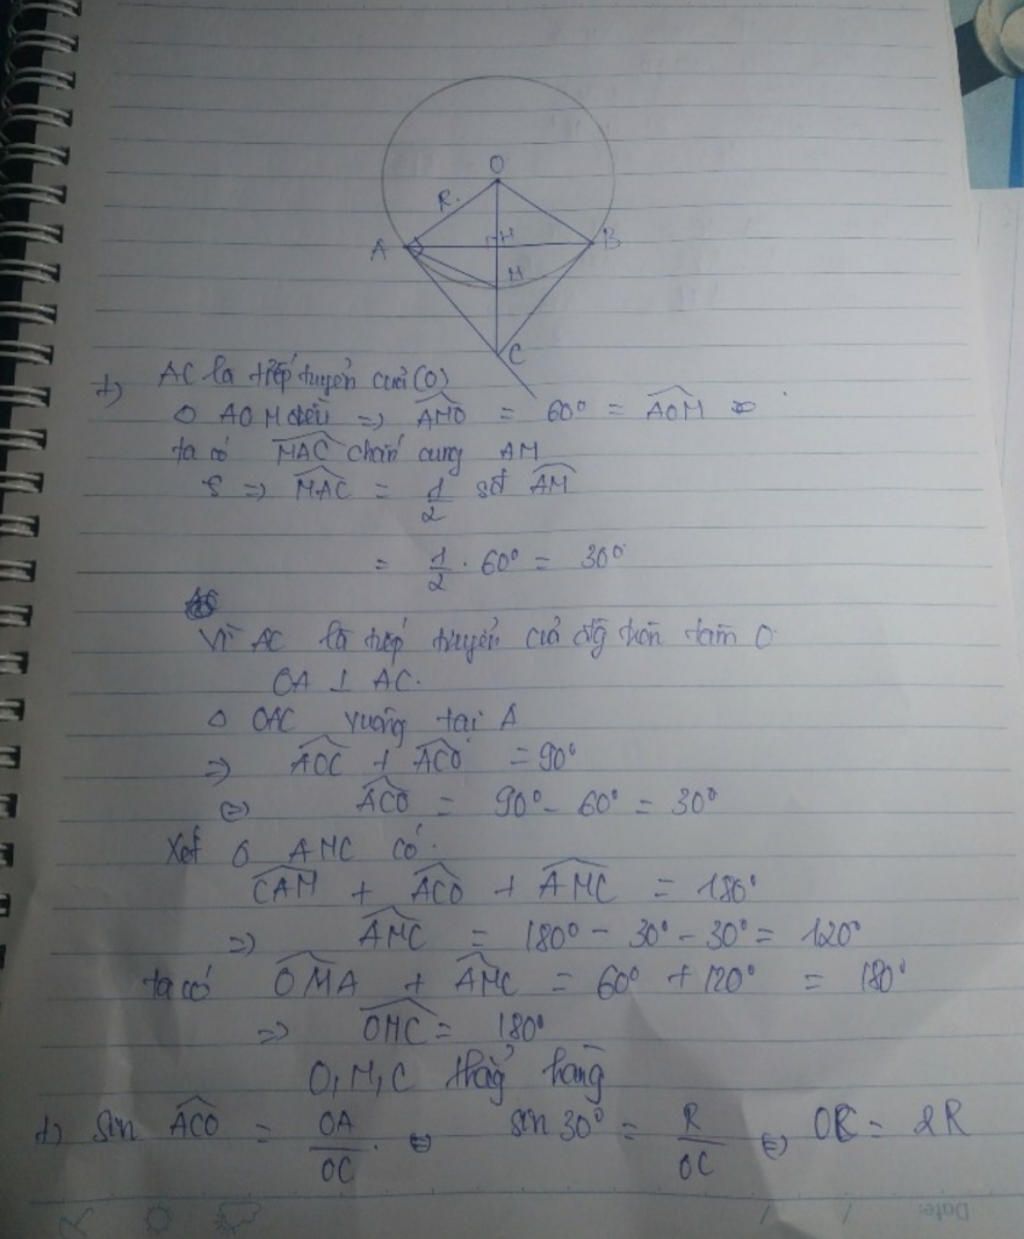 O
R.
A
H
B
M
C
+) AC là tiếp tuyến của (O)
Δ AOM đều => AMO = 60° = AOM
ta có MAC chắn cung AM
=> MAC = 1/2 sđ AM
= 1/2 . 60° = 30°
Vì AC là tiếp tuyến của đg tròn tâm O
OA ⊥ AC.
Δ OAC vuông tại A
=> AOC + ACO = 90°
(=) ACO = 90° - 60° = 30°
Xét Δ AMC có.
CAM + ACO + AMC = 180°
=> AMC = 180° - 30° - 30° = 120°
ta có OMA + AMC = 60° + 120° = 180°
=> OMC = 180°
O, M, C thẳng hàng
+) sin ACO = OA/OC. (=) sin 30° = R/OC (=) OC = 2R
Date: